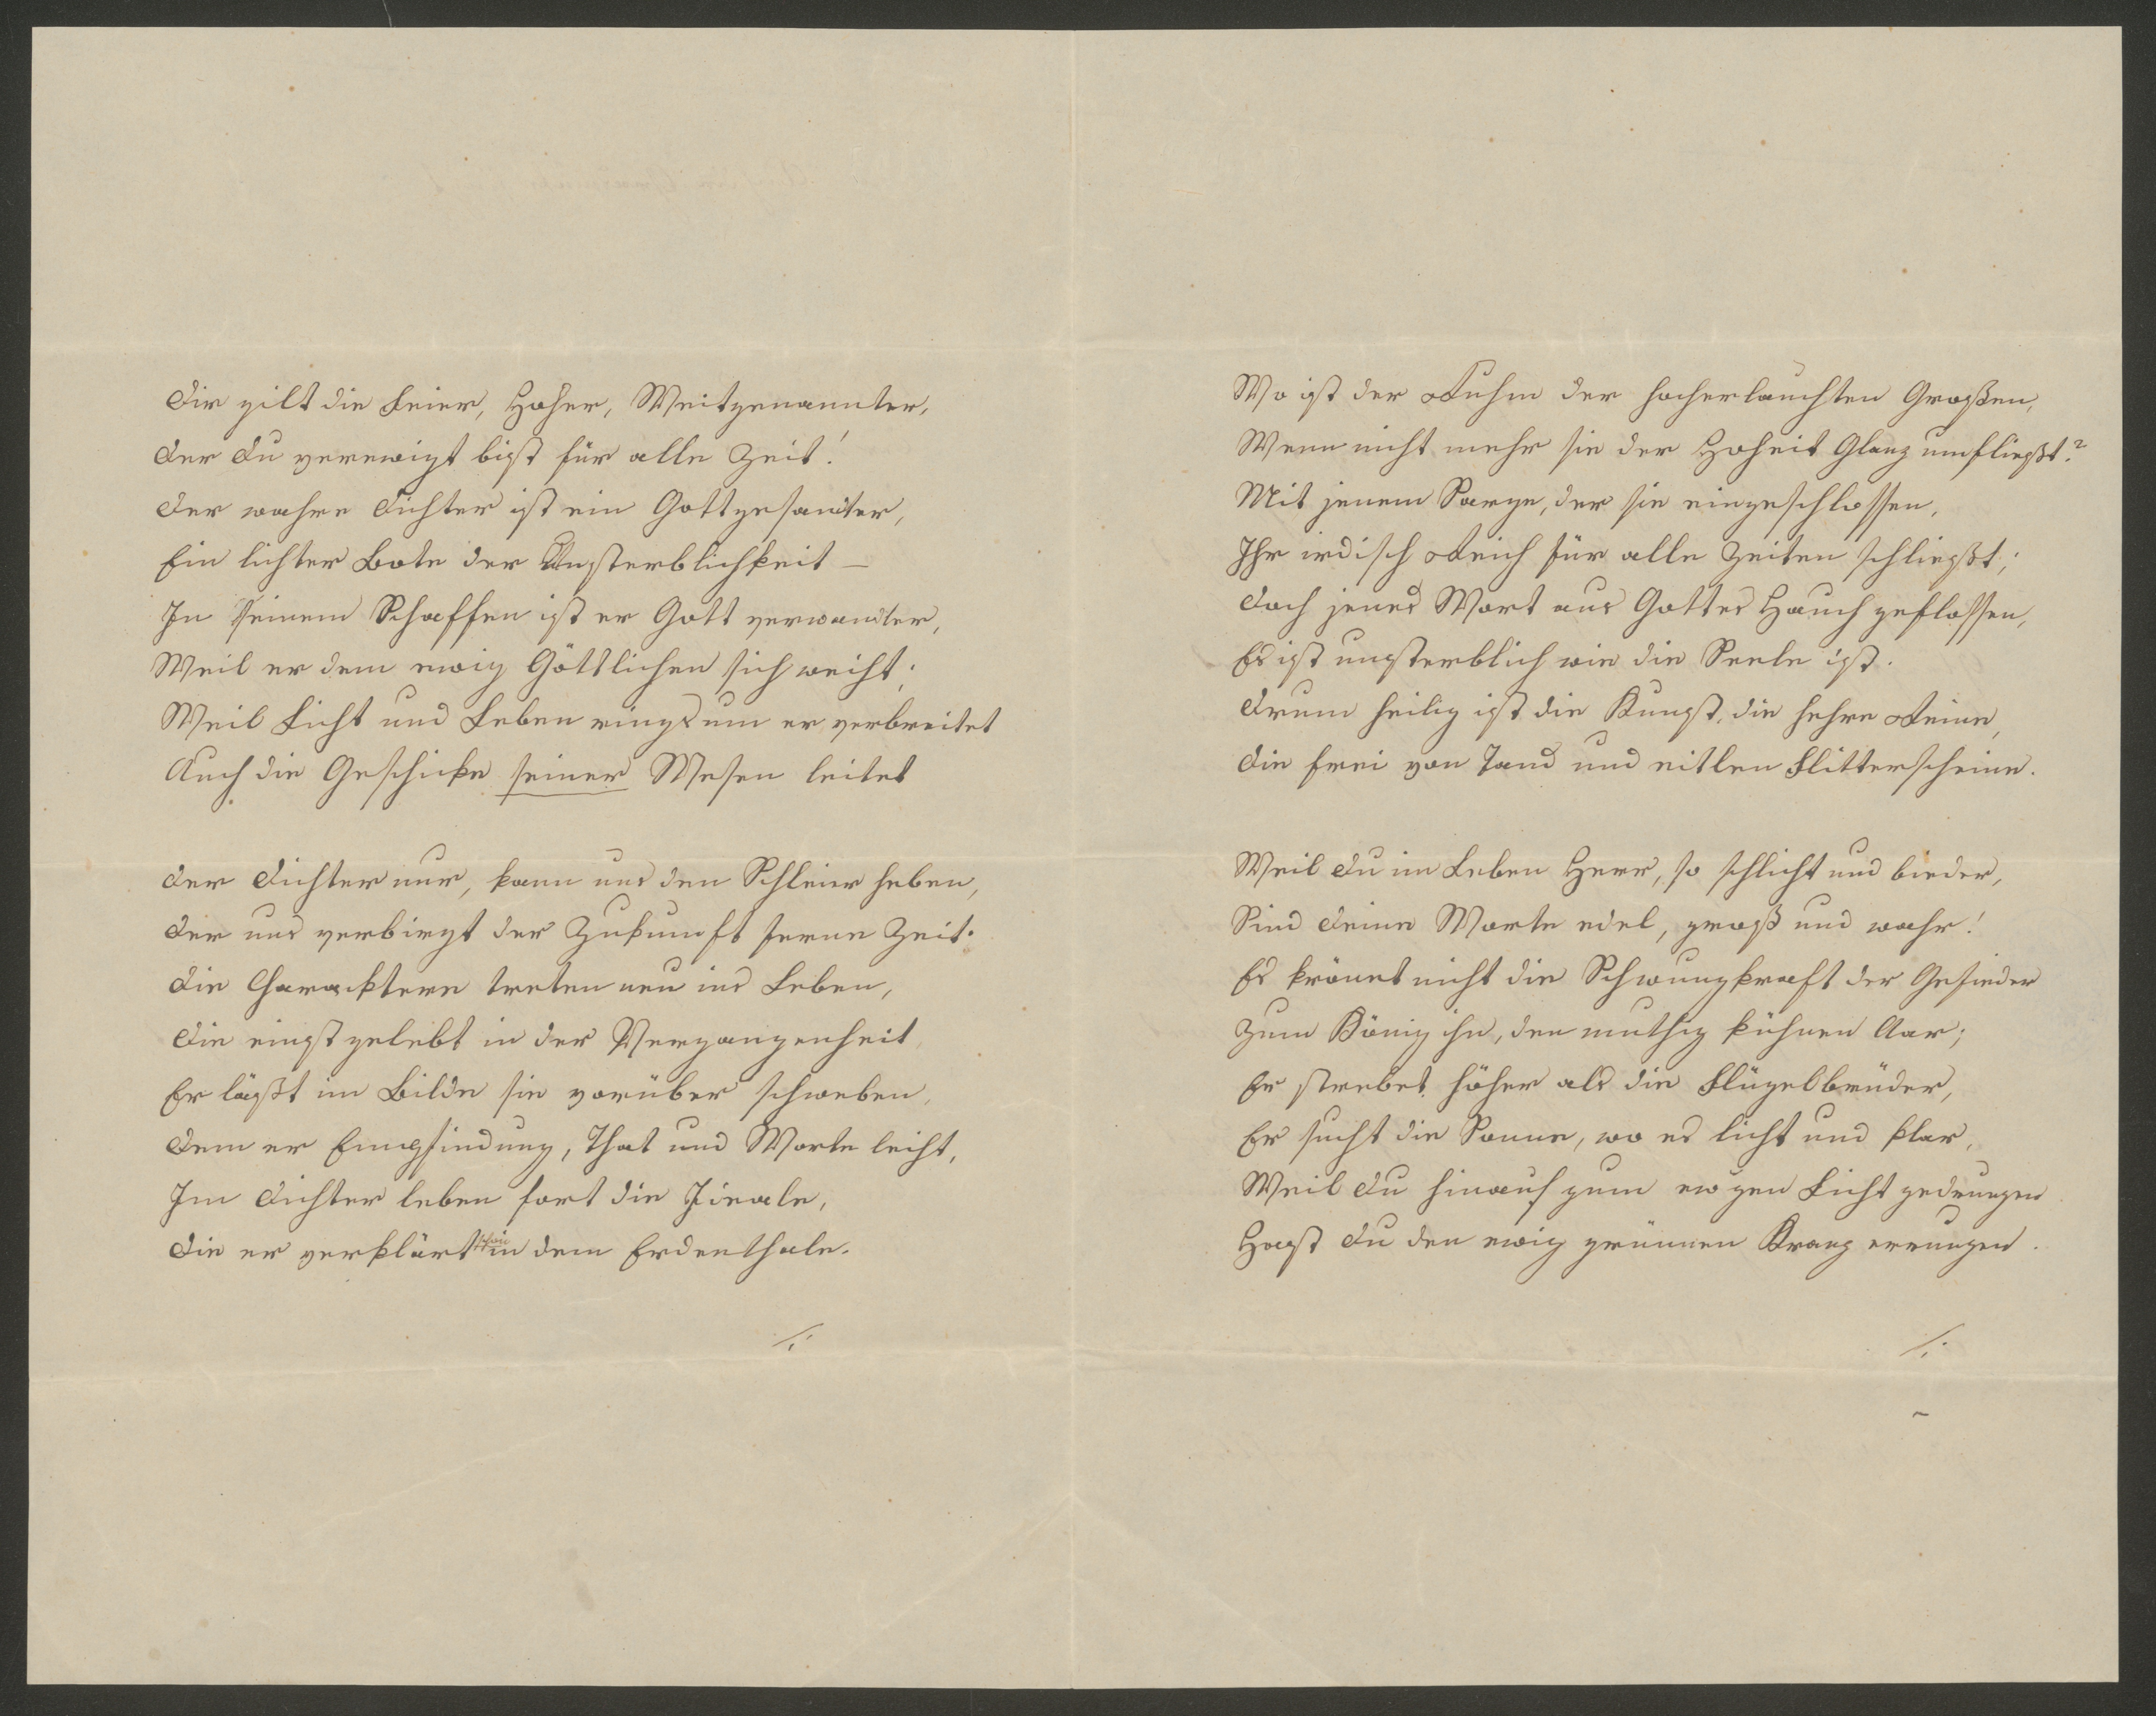 Dir gilt die Feier, Hoher, Weitgenannter,
Der Du verewigt bist für alle Zeit!
Der wahre Dichter ist ein Gottgesandter,
Ein lichter Bote der Unsterblichkeit –
In seinem Schaffen ist er Gott verwandter,
Weil er dem ewig Göttlichen sich weiht;
Weil Licht und Leben ringsum er verbreitet
Auch die Geschicke seiner Wesen leitet
Der Dichter nur, kann uns den Schleier heben,
Der uns verbirgt der Zukunft ferne Zeit.
Die Characktere treten neu ins Leben,
Die einst gelebt in der Vergangenheit
Er läßt im Bilde sie vorüber schweben,
Dem er Empfindung, That und Worte leiht,
Im Dichter leben fort die Ideale,
Die er verklärt schon in dem Erdenthale.
./.
Wo ist der Ruhm der hocherlauchten Großen,
Wenn nicht mehr sie der Hoheit Glanz umfließt?
Mit jenem Sarge, der sie eingeschlossen,
Ihr irdisch Reich für alle Zeiten schließt;
Doch jenes Wort aus Gottes Hauch geflossen,
Es ist unsterblich wie die Seele ist.
Drum heilig ist die Kunst, die hehre Reine,
Die frei von Tand und eitlen Flitterscheine.
Weil Du im Leben Herr, so schlicht und bieder,
Sind Deine Worte edel, groß und wahr!
Es krönet nicht die Schwungkraft der Gefieder
Zum König ihn, den muthig kühnen Aar;
Er strebet höher als die Flügelbrüder,
Er sucht die Sonne, wo es licht und klar,
Weil Du hinauf zum ew'gen Licht gedrungen
Hast Du den ewig grünnen Kranz errungen.
./.